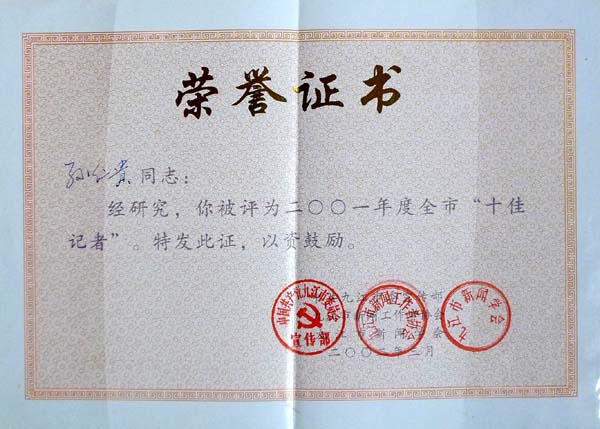 荣誉证书
孙仁贵同志：
经研究，你被评为二〇〇一年度全市“十佳
记者”。特发此证，以资鼓励。
中国共产党九江市委员会
宣传部
九江市新闻工作者协会
九江市新闻学会
九江 传部
市新闻工作 协会
市新闻 会
二〇〇二年三月